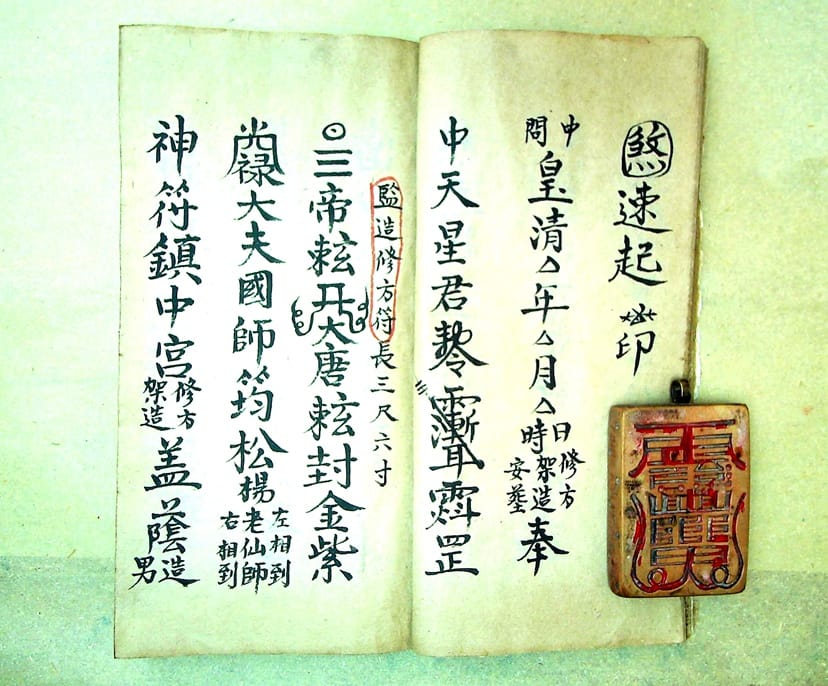 煞速起印
申問皇清厶年厶月厶日時修方架造安葬奉
中天星君罡
監造修方符長三尺六寸
三帝敕大唐敕封金紫
光祿大夫國師筠松楊老仙師左相到右相到
神符鎮中宮修方架造盖蔭造男